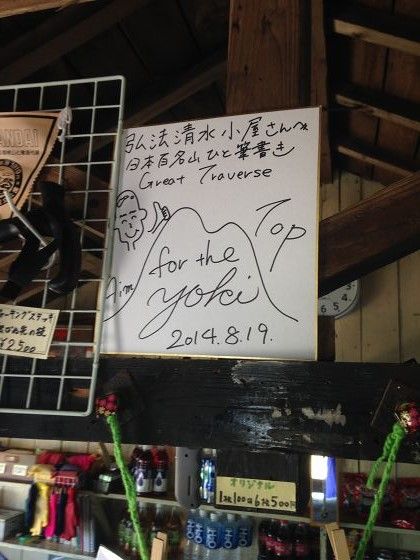 弘法清水小屋さんへ
日本百名山ひと筆書き
Great Traverse
Top
Aim for the
yoki
2014.8.19.
NDAI
ーキングステッキ
¥2500
オリジナル
1コ100円6コ500円